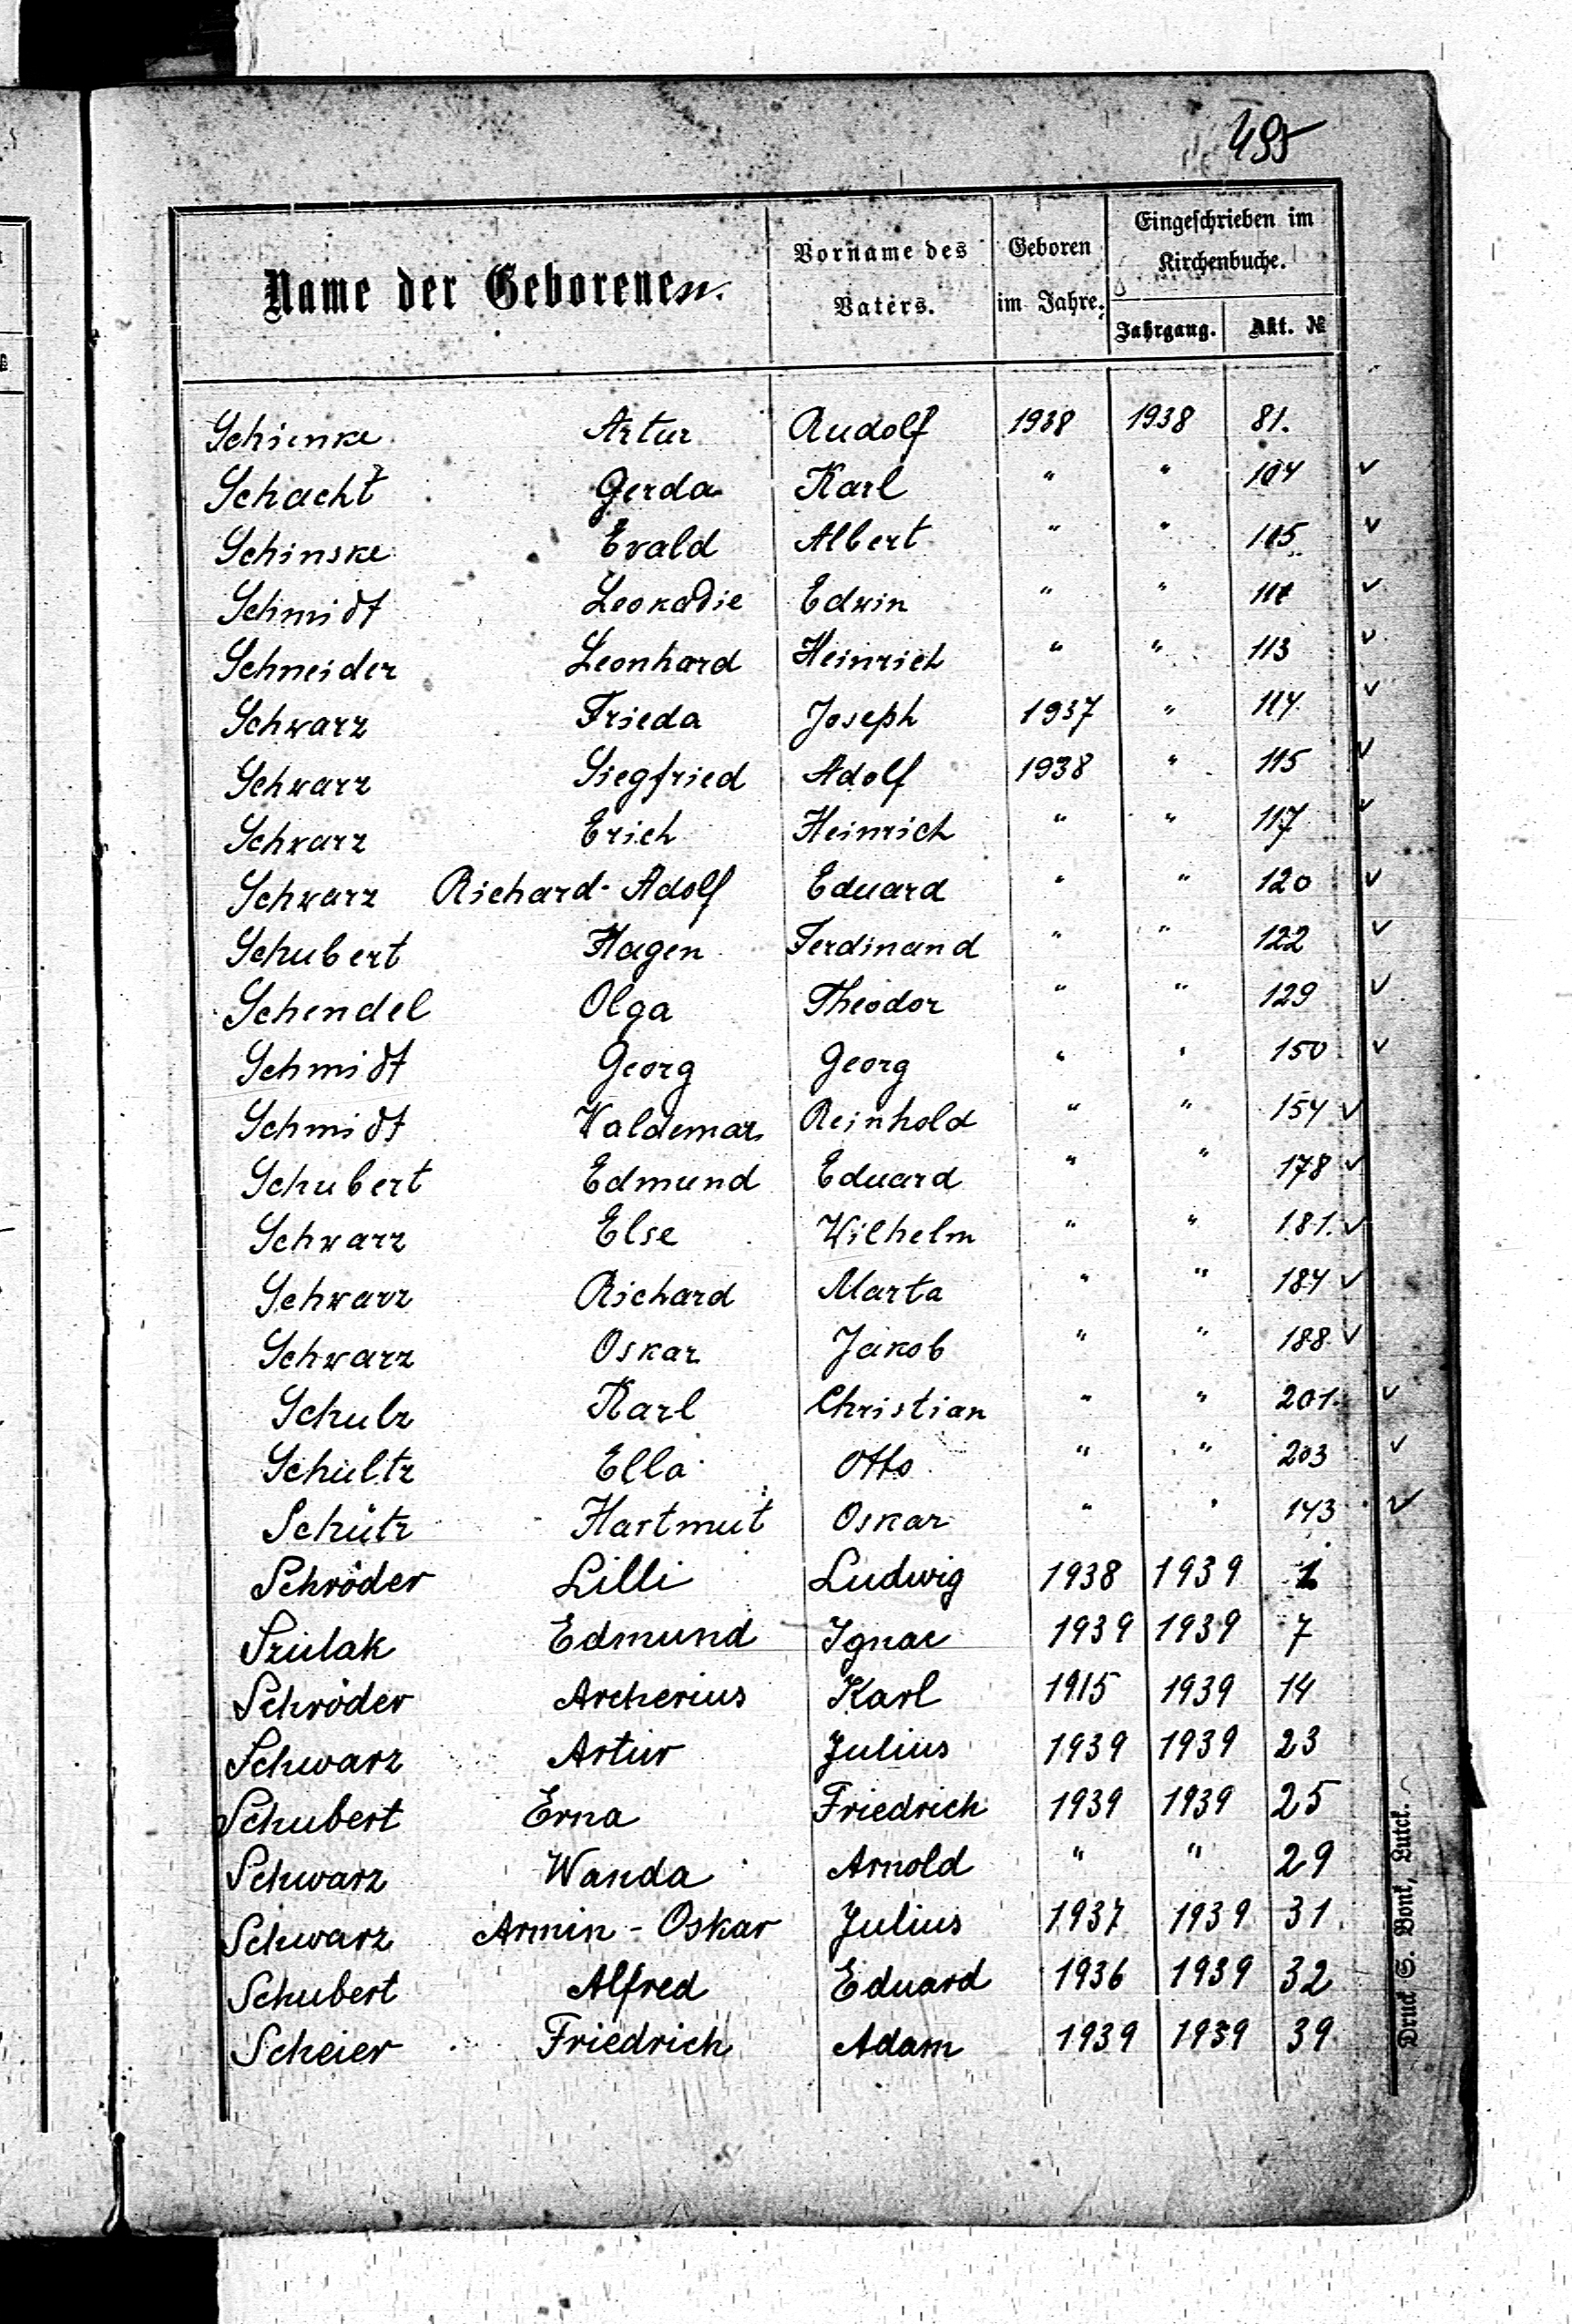 495
Name der Geborenen.
Vorname des Vaters.
Geboren im Jahre.
Eingeschrieben im Kirchenbuche.
Jahrgang. Akt. №
Schienke Artur Rudolf 1938 1938 81.
Schacht Gerda Karl " " 104 ✓
Schinske Evald Albert " " 105 ✓
Schmidt Leokadie Edwin " " ✓
Schneider Leonhard Heinrich " " 113 ✓
Schwarz Frieda Joseph 1937 " 114 ✓
Schwarz Siegfried Adolf 1938 " 115 ✓
Schwarz Erich Heinrich " " 117 ✓
Schwarz Richard-Adolf Eduard " " 120 ✓
Schubert Hagen Ferdinand " " 122 ✓
Schendel Olga Theodor " " 129 ✓
Schmidt Georg Georg " " 150 ✓
Schmidt Waldemar Reinhold " " 154 ✓
Schubert Edmund Eduard " " 178 ✓
Schwarz Else Wilhelm " " 181. ✓
Schwarz Richard Marta " " 184 ✓
Schwarz Oskar Jakob " " 188. ✓
Schulz Karl Christian " " 201. ✓
Schultz Ella Otto " " 203 ✓
Schütz Hartmut Oskar " " 143 ✓
Schröder Lilli Ludwig 1938 1939 1
Sziulak Edmund Ignac 1939 1939 7
Schröder Archerius Karl 1915 1939 14
Schwarz Artur Julius 1939 1939 23
Schubert Erna Friedrich 1939 1939 25
Schwarz Wanda Arnold " " 29
Schwarz Armin - Oskar Julius 1937 1939 31.
Schubert Alfred Eduard 1936 1939 32
Scheier Friedrich Adam 1939 1939 39
Druck S. Bonk, Lutck.